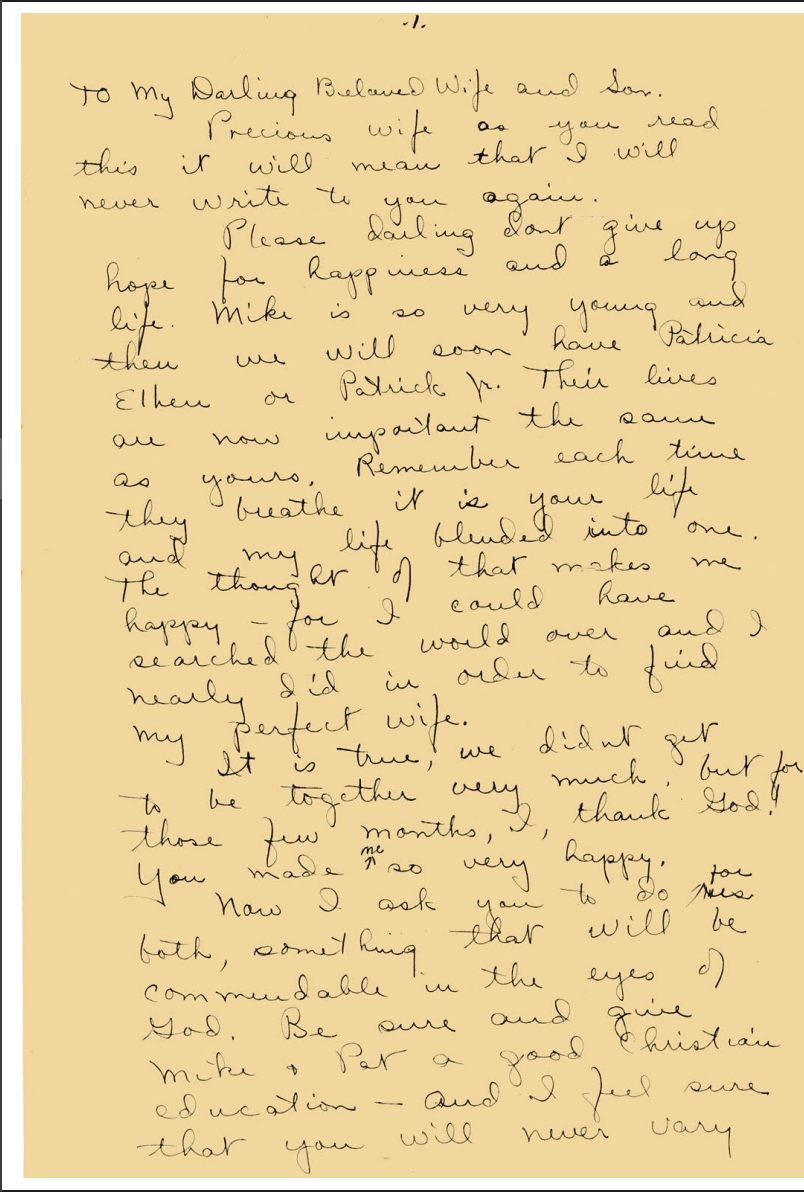 .1.
To My Darling Beloved Wife and Son.
Precious wife as you read
this it will mean that I will
never write to you again.
Please darling dont give up
hope for happiness and a long
life. Mike is so very young and
then we will soon have Patricia
Ellen or Patrick Jr. Their lives
are now important the same
as yours. Remember each time
they breathe it is your life
and my life blended into one.
The thought of that makes me
happy – for I could have
searched the world over and I
nearly did in order to find
my perfect wife.
It is true, we didnt get
to be together very much, but for
those few months, I, thank God!
You made me so very happy.
Now I ask you to do for
both, something that will be
commendable in the eyes of
God. Be sure and give
Mike & Pat a good Christian
education – and I feel sure
that you will never vary